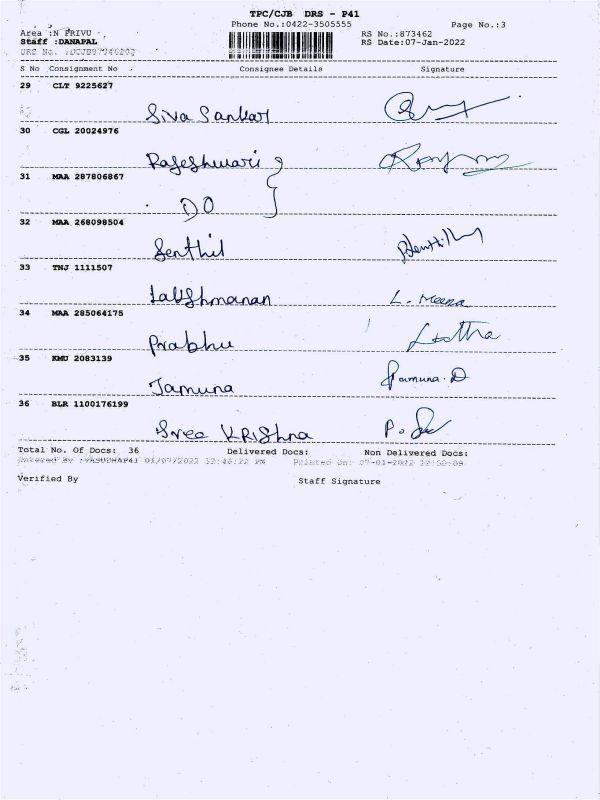 TPC/CJB DRS - P41
Phone No.:0422-3505555 Page No.:3
Area :N PRIVU RS No.:873462
Staff :DANAPAL RS Date:07-Jan-2022
DRS No.
S No Consignment No Consignee Details Signature
29 CLT 9225627
Siva Sankar
30 CGL 20024976
Rajeshwari
31 MAA 287806867
DO
32 MAA 268098504
Senthil Senthil
33 TNJ 1111507
Lakshmanan L. Meena
34 MAA 285064175
Prabhu
35 KMU 2083139
Jamuna Jamuna. D
36 BLR 1100176199
Sree KRIShna
Total No. Of Docs: 36 Delivered Docs: Non Delivered Docs:
Entered By :VASUDHAP41 01/07/2022 12:46:22 PM Printed On: 07-01-2022 12:50:09
Verified By Staff Signature